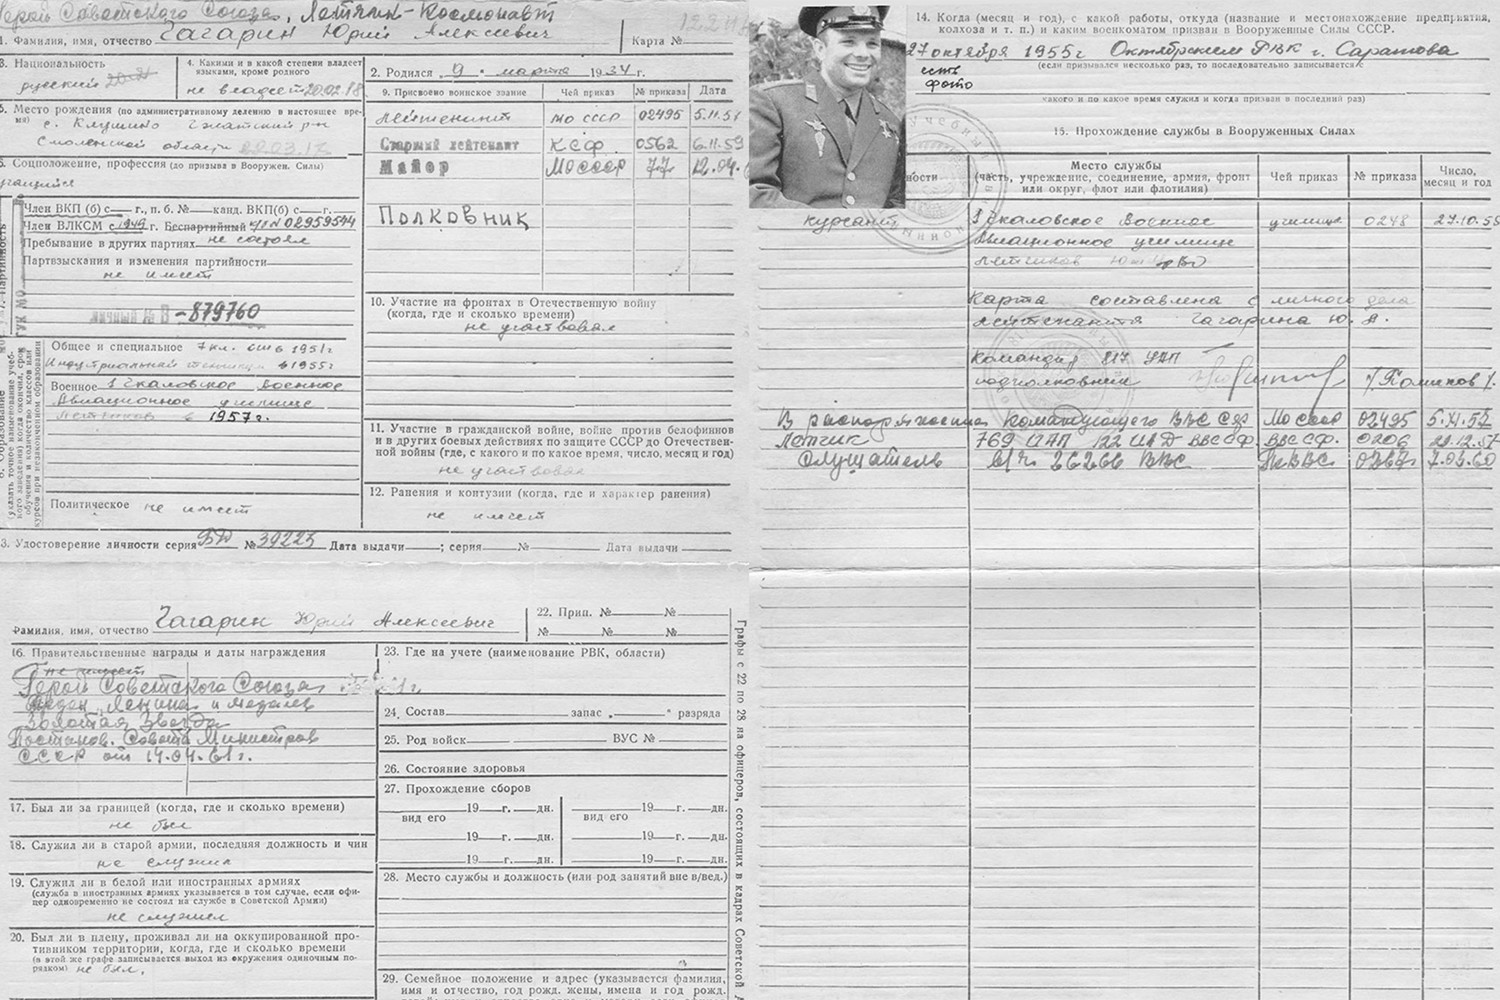 Герой Советского Союза, Летчик-Космонавт
1. Фамилия, имя, отчество Гагарин Юрий Алексеевич
Карта №
3. Национальность
русский
4. Какими и в какой степени владеет языками, кроме родного
не владеет
2. Родился 9 марта 1934 г.
5. Место рождения (по административному делению в настоящее время)
с. Клушино Гжатский р-н
Смоленской области
6. Соцположение, профессия (до призыва в Вооружен. Силы)
учащийся
9. Присвоено воинское звание Чей приказ № приказа Дата
лейтенант МО СССР 02495 5.11.57
Старший лейтенант КСФ 0562 6.11.59
Майор МО СССР 77 12.04.
Полковник
Член ВКП (б) с г., п. б. № канд. ВКП(б) с г.
Член ВЛКСМ с 1949 г. Беспартийный ч/б № 02959544
Пребывание в других партиях не состоял
Партвзыскания и изменения партийности
не имеет
личный № В-879760
Общее и специальное 7 кл. в 1951 г
Индустриальный техникум в 1955 г
Военное 1 Чкаловское военное
авиационное училище
летчиков в 1957 г.
Политическое не имеет
10. Участие на фронтах в Отечественную войну
(когда, где и сколько времени)
не участвовал
11. Участие в гражданской войне, войне против белофиннов
и в других боевых действиях по защите СССР до Отечествен-
ной войны (где, с какого и по какое время, число, месяц и год)
не участвовал
12. Ранения и контузии (когда, где и характер ранения)
не имеет
13. Удостоверение личности серия № 39223 Дата выдачи ; серия № Дата выдачи
Фамилия, имя, отчество Гагарин Юрий Алексеевич
22. Прип. № №
№ № №
16. Правительственные награды и даты награждения
не имеет
Герой Советского Союза
Орден Ленина и медаль
Золотая Звезда
Постанов. Совета Министров
СССР от 14.04.61 г.
17. Был ли за границей (когда, где и сколько времени)
не был
18. Служил ли в старой армии, последняя должность и чин
не служил
19. Служил ли в белой или иностранных армиях
(служба в иностранных армиях указывается в том случае, если офи-
цер одновременно не состоял на службе в Советской Армии)
не служил
20. Был ли в плену, проживал ли на оккупированной про-
тивником территории, когда, где и сколько времени
(в этой же графе записывается выход из окружения одиночным по-
рядком) не был.
23. Где на учете (наименование РВК, области)
24. Состав запас " " разряда
25. Род войск ВУС №
26. Состояние здоровья
27. Прохождение сборов
19 г. дн. 19 г. дн.
вид его вид его
19 г. дн. 19 г. дн.
19 г. дн. 19 г. дн.
28. Место службы и должность (или род занятий вне в/вед.)
29. Семейное положение и адрес (указывается фамилия,
имя и отчество, год рожд. жены, имена и год рожд.
Графы с 22 по 28 на офицеров, состоящих в кадрах Советской
14. Когда (месяц и год), с какой работы, откуда (название и местонахождение предприятия,
колхоза и т. п.) и каким военкоматом призван в Вооруженные Силы СССР.
27 октября 1955 г Октябрьским РВК г. Саратова
(если призывался несколько раз, то последовательно записывается с
есть
фото
какого и по какое время служил и когда призван в последний раз)
15. Прохождение службы в Вооруженных Силах
ности
Место службы
(часть, учреждение, соединение, армия, фронт
или округ, флот или флотилия)
Чей приказ № приказа Число, месяц и год
курсант 1 Чкаловское Военное училище 0248 27.10.55
Авиационное училище
летчиков
Карта составлена с личного дела
лейтенанта Гагарина Ю. А.
Командир 817 УАП
подполковник
В распоряжение командующего ВВС СФ МО СССР 02495 5.XI.57
Летчик 769 ИАП 122 ИАД ВВС СФ. ВВС СФ. 0206 29.12.57
Слушатель в/ч 26266 ВВС 7.03.60